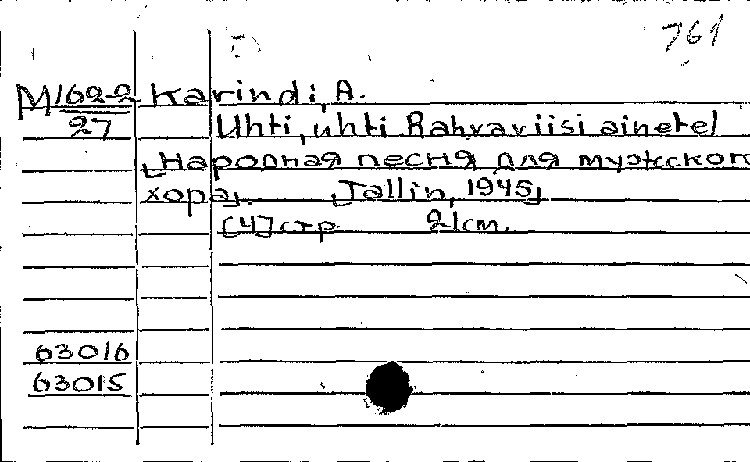 761
M162-2 Karindi, A.
27 Uhti, uhti Rahvaviisi ainetel
[Народная песня для мужского
хора]. [Tallin, 1945]
[4] стр. 21 см.
63016
63015